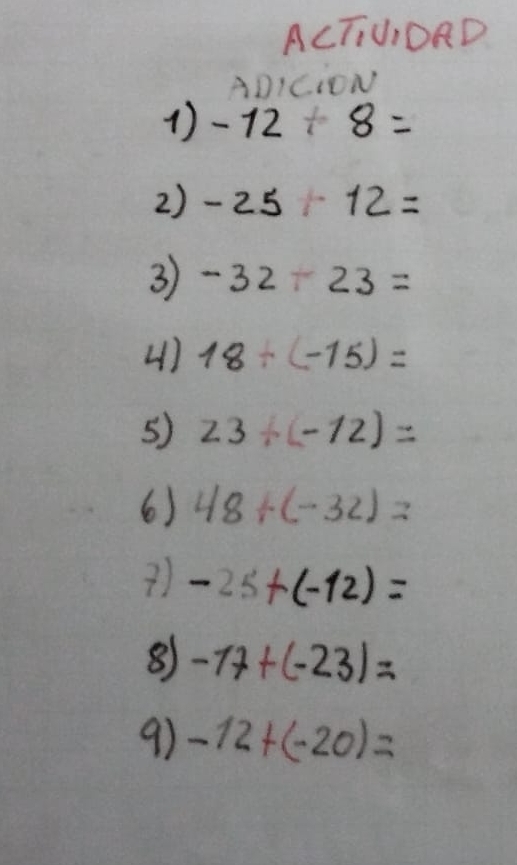 ACTIVIDAD
ADICION
1) -12 + 8 =
2) -25 + 12 =
3) -32 + 23 =
4) 18 + (-15) =
5) 23 + (-12) =
6) 48 + (-32) =
7) -25 + (-12) =
8) -17 + (-23) =
9) -12 + (-20) =